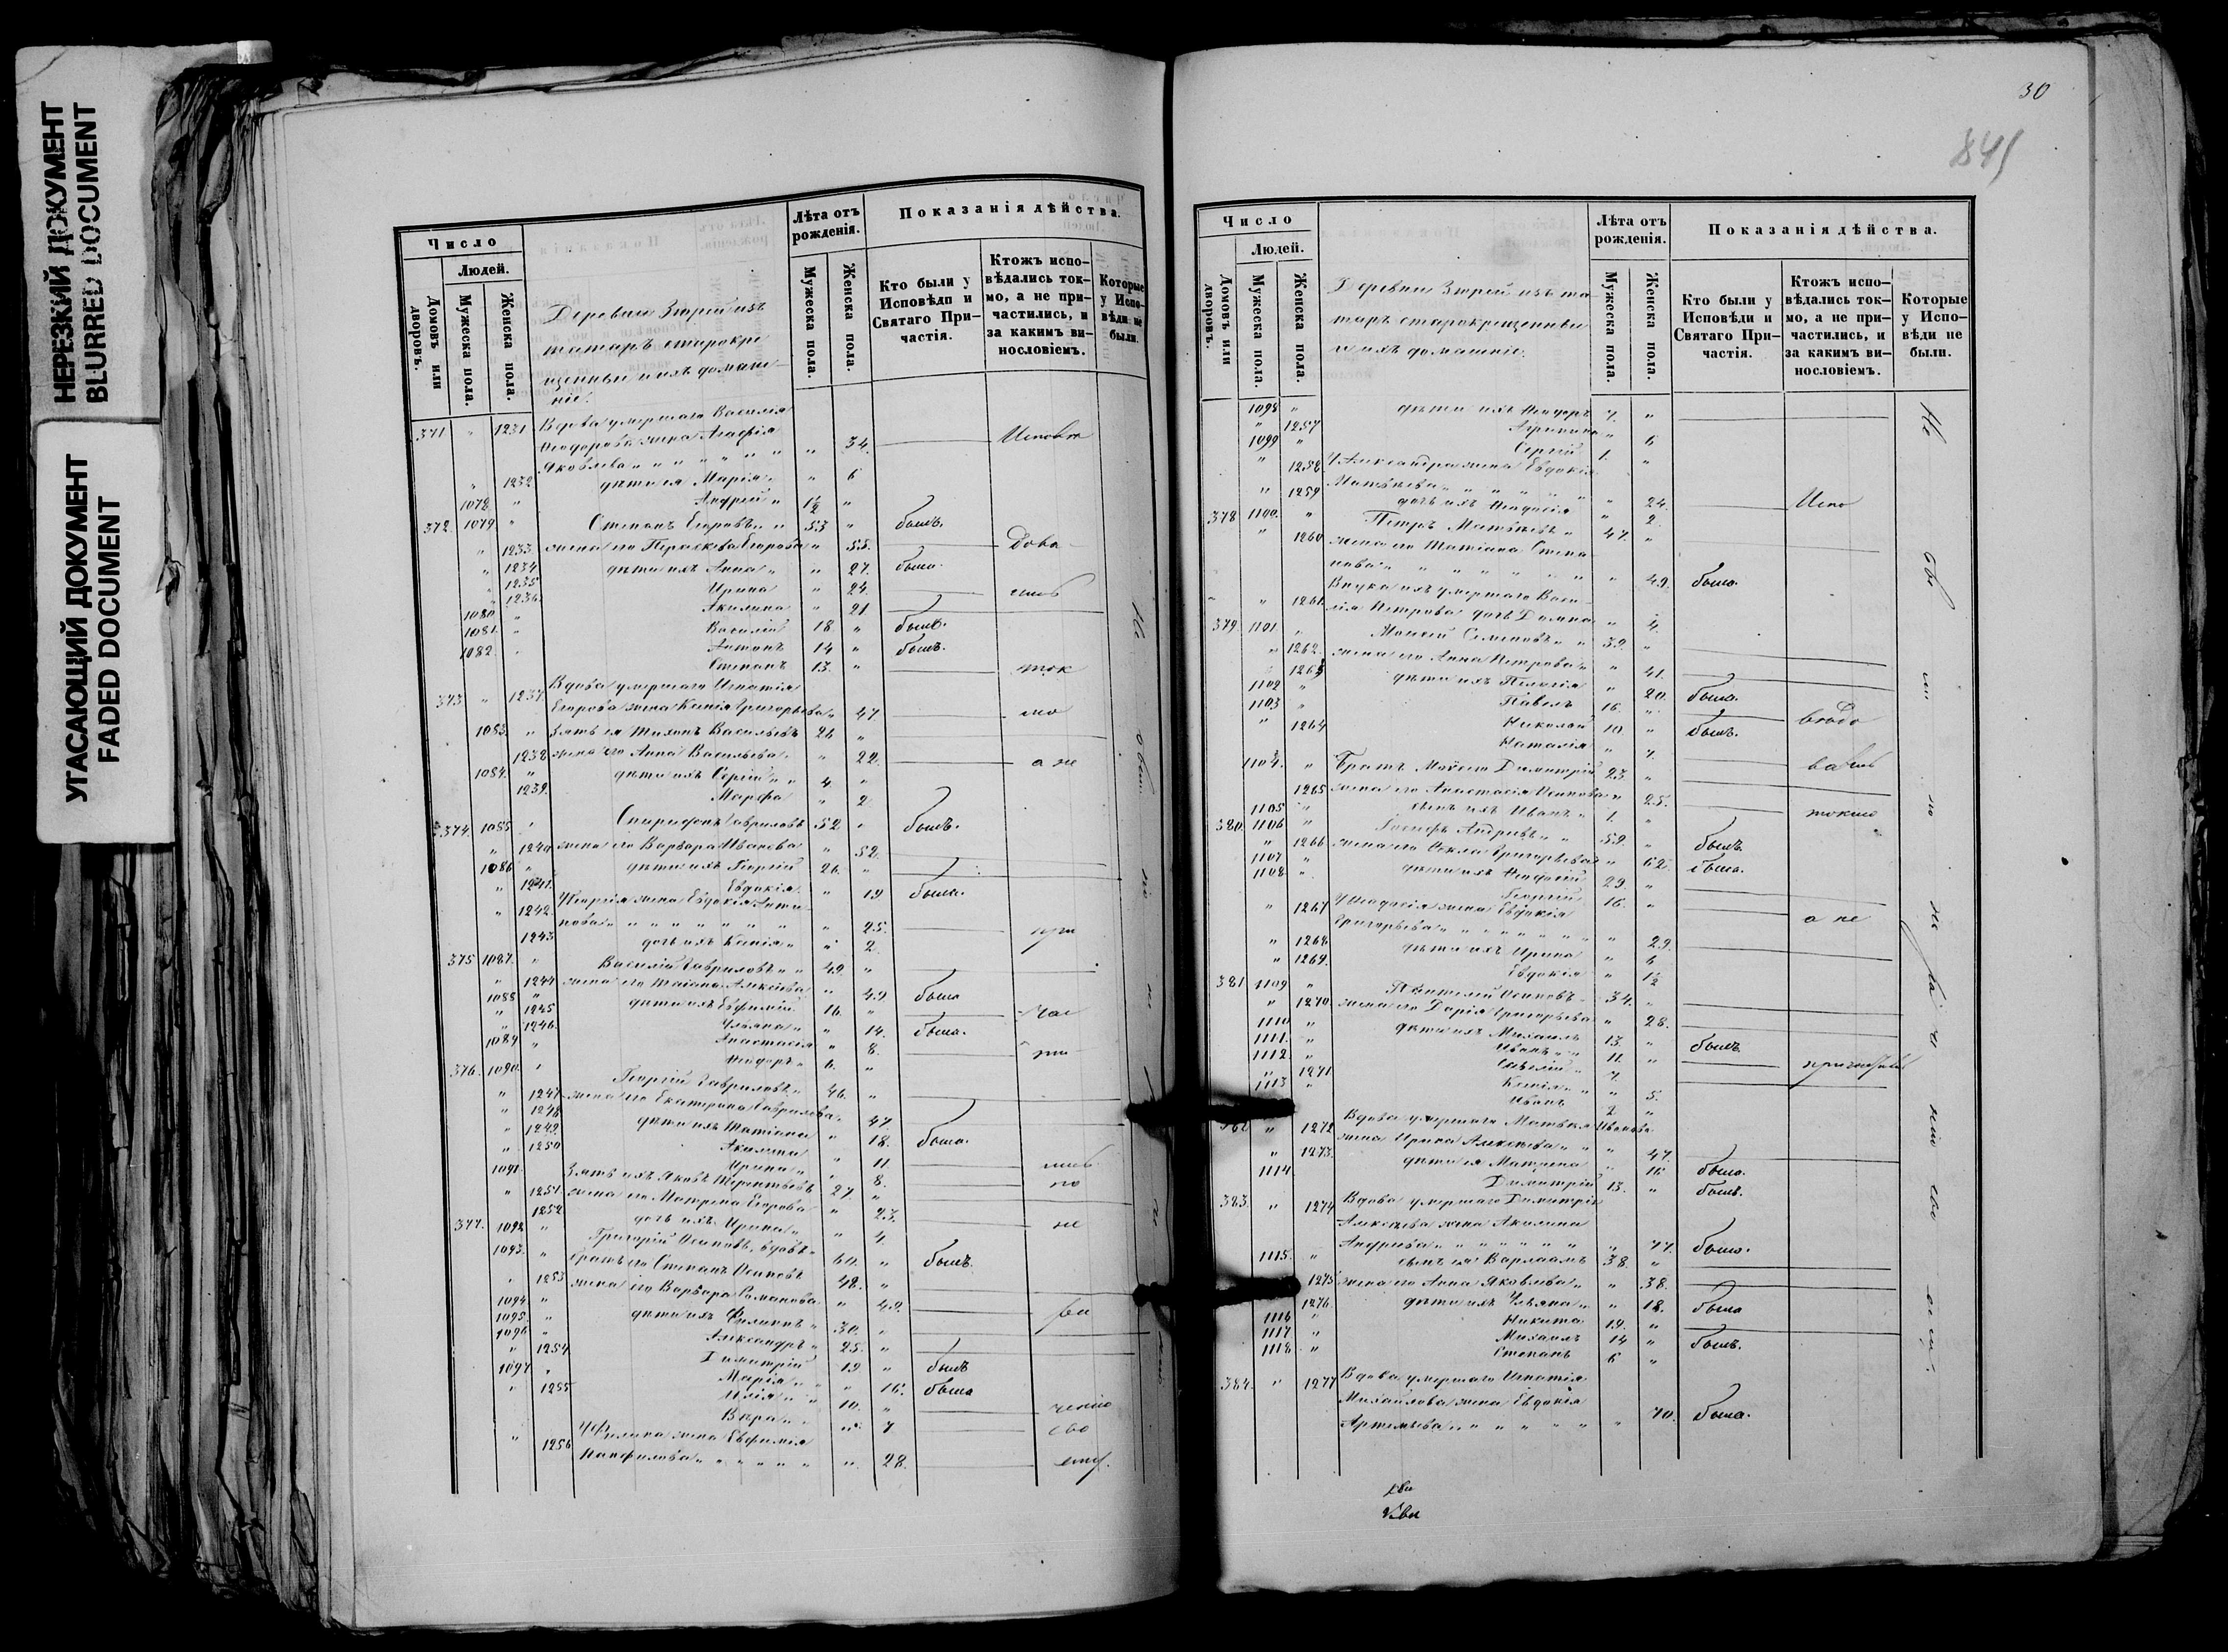 НЕРЕЗКИЙ ДОКУМЕНТ
BLURRED DOCUMENT
УГАСАЮЩИЙ ДОКУМЕНТ
FADED DOCUMENT
Число
Домовъ или дворовъ.
Людей.
Мужеска пола.
Женска пола.
Деревни Зюрей изъ
татаръ старокре
щенные и ихъ домаш-
ніе.
Лѣта отъ рожденія.
Мужеска пола.
Женска пола.
Показанія дѣйства.
Кто были у Исповѣди и Святаго При-частія.
Ктожъ испо-вѣдались ток-мо, а не при-частились, и за какимъ ви-нословіемъ.
Которые у Испо-вѣди не были.
371 " 1231 Вдова умершаго Василія
Ѳеодорова жена Агафія
Яковлева " " " " " " " 34.
" 1232 дѣти ея Марія " " 6
1078 " Андрей " 1½ "
372. 1079 " Степанъ Егоровъ " " 53 " былъ.
" 1233. жена его Параскева Егорова " 55.
" 1234 дѣти ихъ Анна " " 27. была.
" 1235 Ирина " 24.
" 1236. Акилина " 21
1080 " Василій 18. " былъ.
1081. " Антонъ 14 " былъ.
1082. " Степанъ 13. " ток
373 " 1237. Вдова умершаго Игнатія
Егорова жена Ксенія Григорьева " 47 мо
1083. " Зять ея Тихонъ Васильевъ 26 "
1238 жена его Анна Васильева " " 22. а не
1084. " дѣти ихъ Сергій " " 4. "
1239. Марфа " 2
374. 1085 " Спиридонъ Гавриловъ 52 " былъ.
" 1240 жена его Варвара Иванова " 52.
1086 " дѣти ихъ Георгій 26. "
" 1241. Евдокія " 19 была.
" 1242. У Георгія жена Евдокія Анти-
пова " " " " " " " 25. при
1243 дочь ихъ Ксенія " " 2
375 1087. " Василій Гавриловъ " " 49. "
" 1244 жена его Татіана Алексѣева " 49 была
1088 " дѣти ихъ Евфимій 16. "
" 1245 Ульяна " " 14. была.
" 1246. Анастасія " 8.
1089 " Ѳеодоръ " 6. "
376. 1090. " Георгій Гавриловъ " 46. "
" 1247 жена его Екатерина Гаврилова " 47.
" 1248 дѣти ихъ Татіана " 18. была.
" 1249. Акилина " 11
" 1250 Ирина " " 8.
1091. Зять ихъ Яковъ Терентьевъ 27. "
" 1251. жена его Матрена Егорова " 23.
1252 дочь ихъ Ирина " " 4.
377. 1092 " Григорій Осиповъ, вдовъ 60. " былъ
1093. " Братъ его Степанъ Осиповъ 48. "
" 1253 жена его Варвара Романова " 49.
1094 " дѣти ихъ Филиппъ " 30. "
1095. " Александръ " 25. "
1096 " Димитрій 19. " былъ
" 1254 Марія " " " 16. была
1097 " Илія " " 10. "
" 1255 Вѣра " " " 7
" 1256 У Филиппа жена Евфимія
Панфилова " " " " " " 28.
30
845
Число
Домовъ или дворовъ.
Людей.
Мужеска пола.
Женска пола.
Деревни Зюрей изъ та-
таръ старокрещенные
и ихъ домашніе.
Лѣта отъ рожденія.
Мужеска пола.
Женска пола.
Показанія дѣйства.
Кто были у Исповѣди и Святаго При-частія.
Ктожъ испо-вѣдались ток-мо, а не при-частились, и за какимъ ви-нословіемъ.
Которые у Испо-вѣди не были.
1098 " дѣти ихъ Ѳеодоръ 7. "
" 1257 Агрипина " 6
1099 " Сергій 1. "
" 1258 У Александра жена Евдокія
Матвѣева " " " " " " 24. Испо
" 1259 дочь ихъ Ѳеодосія " 2.
378 1100. " Петръ Матвѣевъ " 47. "
" 1260 жена его Татіана Степа
нова " " " " " " " 49. была.
" " 1261 Внука ихъ умершаго Васи-
лія Петрова дочь Домна " 4.
379. 1101. " Моисей Семеновъ " " 39. "
" 1262. жена его Анна Петрова " " 41.
" 1263 дѣти ихъ Пелагія " 20. была.
1102 " Павелъ 16. "
1103 " Николай 10. " былъ.
" 1264 Наталія " 7.
1104. " Братъ Моисея Димитрій 23. "
1265 жена его Анастасія Осипова " 25.
1105 " сынъ ихъ Иванъ " 1. " токмо
380. 1106 " Іосифъ Андреевъ " " 59. " былъ
" 1266 жена его Ѳекла Григорьева " 62. была.
1107 " дѣти ихъ Ѳеодосій 29. "
1108 " Георгій 16. "
" 1267 У Ѳеодосія жена Евдокія
Григорьева " " " " " " " 29. а не
" 1268. дѣти ихъ Ирина " 6
" 1269. Евдокія " 1½
381 1109 " Пантелей Осиповъ 34. "
" 1270. жена его Дарія Григорьева " 28.
1110 " дѣти ихъ Михаилъ 13. " былъ
1111. " Иванъ " " 11. "
1112. " Савелій " 7. "
" 1271 Ксенія " " " 5.
1113 " Иванъ 2 "
" 1272 Вдова умершаго Матвѣя Иванова
жена Ирина Алексѣева " " " 47.
" 1273. дѣти ея Матрена " 16 была.
1114 Димитрій 13. " былъ.
383. " 1274 Вдова умершаго Димитрія
Алексѣева жена Акилина
Андреева " " " " " " " 77. была.
1115. " сынъ ея Варлаамъ 38. "
1275 жена его Анна Яковлева " " 38.
1276. дѣти ихъ Ульяна " " 18. была
1116 " Никита 19. "
1117 " Михаилъ 14 " былъ.
1118 " Степанъ 6 "
384. " 1277 Вдова умершаго Игнатія
Михайлова жена Евдокія
Артемьева " " " " " " " 70. была.